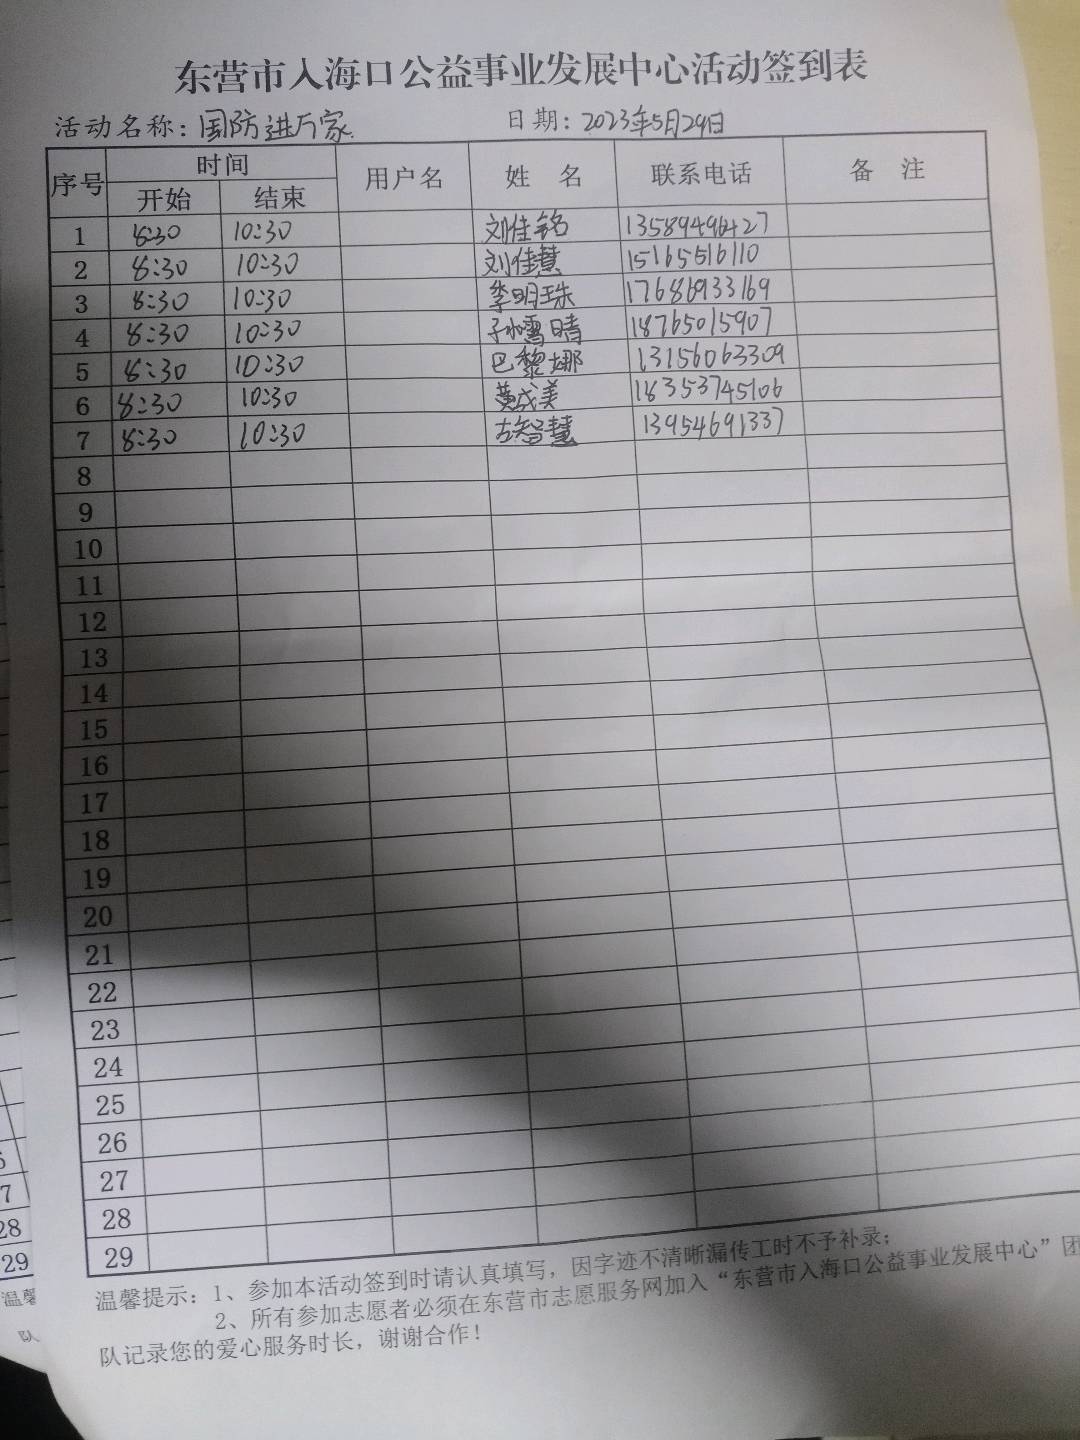 东营市入海口公益事业发展中心活动签到表
活动名称：国防进万家 日期：2023年5月29日
序号 时间 用户名 姓 名 联系电话 备 注
开始 结束
1 8:30 10:30 刘佳铭 13589496427
2 8:30 10:30 刘佳慧 15165516110
3 8:30 10:30 李明珠 17686933169
4 8:30 10:30 18765015907
5 8:30 10:30 巴黎娜 13156063309
6 8:30 10:30 黄成美 18353745106
7 8:30 10:30 古智慧 13954691337
8
9
10
11
12
13
14
15
16
17
18
19
20
21
22
23
24
25
26
27
28
29
温馨提示：1、参加本活动签到时请认真填写，因字迹不清晰漏传工时不予补录；
2、所有参加志愿者必须在东营市志愿服务网加入“东营市入海口公益事业发展中心”团
队记录您的爱心服务时长，谢谢合作！
7
28
29
温
队